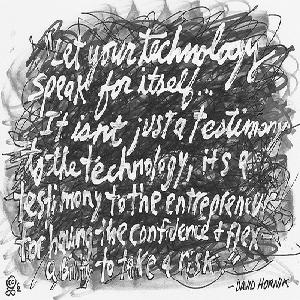 "Let your technology
speak for itself...
It isn't just a testimony
to the technology, it's a
testimony to the entrepreneur
for having the confidence & flex-
ability to take a risk."
—DAVID HORNIK